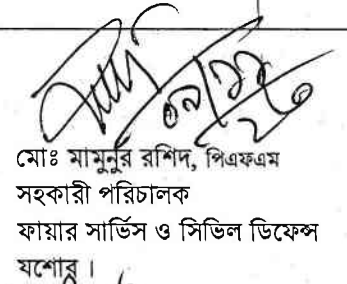 মোঃ মামুনুর রশিদ, পিএফএম
সহকারী পরিচালক
ফায়ার সার্ভিস ও সিভিল ডিফেন্স
যশোর।